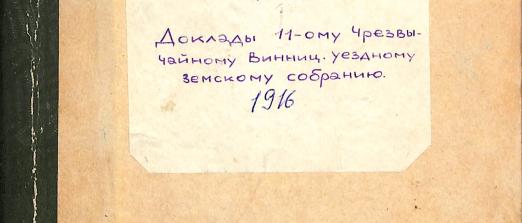 Доклады 11-ому Чрезвы-
чайному Винниц. уездному
земскому собранию.
1916